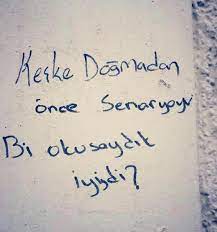 Keşke Doğmadan
önce Senaryoyu
Bi okusaydık
iyiydi?